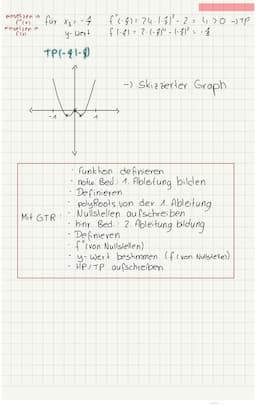 einsetzen in f''(x)
einsetzen in f(x)
für x₃ = -½ f''(-½) = 24·(-½)² - 2 = 4 > 0 → TP
y-Wert f(-½) = 2·(-½)⁴ - (-½)² = -⅛
TP(-½|-⅛)
→ Skizzierter Graph
-1 1
Mit GTR:
- Funktion definieren
- notw. Bed.: 1. Ableitung bilden
- Definieren
- polyRoots von der 1. Ableitung
- Nullstellen aufschreiben
- hinr. Bed.: 2. Ableitung bildung
- Definieren
- f''(von Nullstellen)
- y-Wert bestimmen (f(von Nullstellen)
- HP/TP aufschreiben